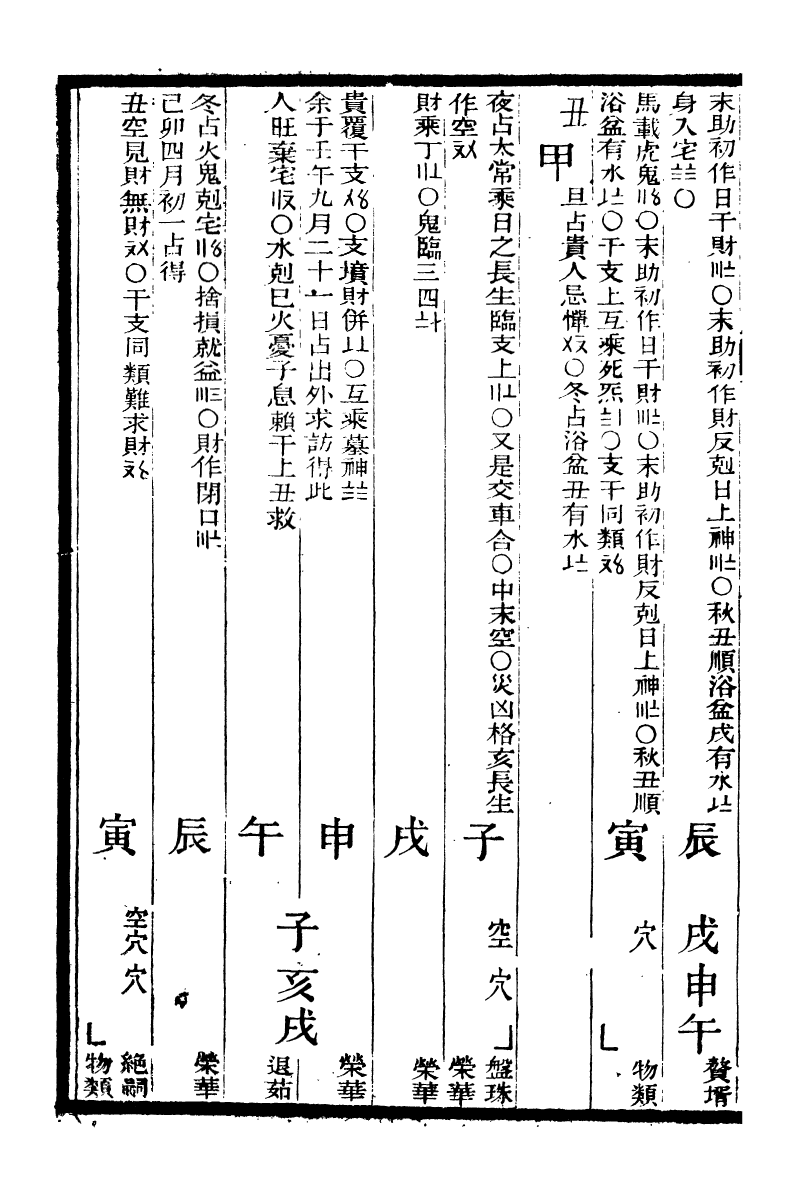 末助初作日干財○末助初作財反剋日上神○秋丑順浴盆戌有水
身入宅○
辰
戌申午
贅壻
馬載虎鬼○末助初作日干財○末助初作財反剋日上神○秋丑順
浴盆有水○干支上互乘死炁○支干同類
寅
穴
物類
丑甲
旦占貴人忌憚○冬占浴盆丑有水
夜占太常乘日之長生臨支上○又是交車合○中末空○災凶格亥長生
作空
子
空穴
盤珠
榮華
財乘丁○鬼臨三四
戌
榮華
貴覆干支○支墳財併○互乘墓神
余于壬午九月二十一日占出外求訪得此
申
榮華
人旺棄宅○水剋巳火憂子息賴干上丑救
午
子亥戌
退茹
冬占火鬼剋宅○捨損就益○財作閉口
己卯四月初一占得
辰
榮華
丑空見財無財○干支同類難求財
寅
空穴穴
絕嗣
物類